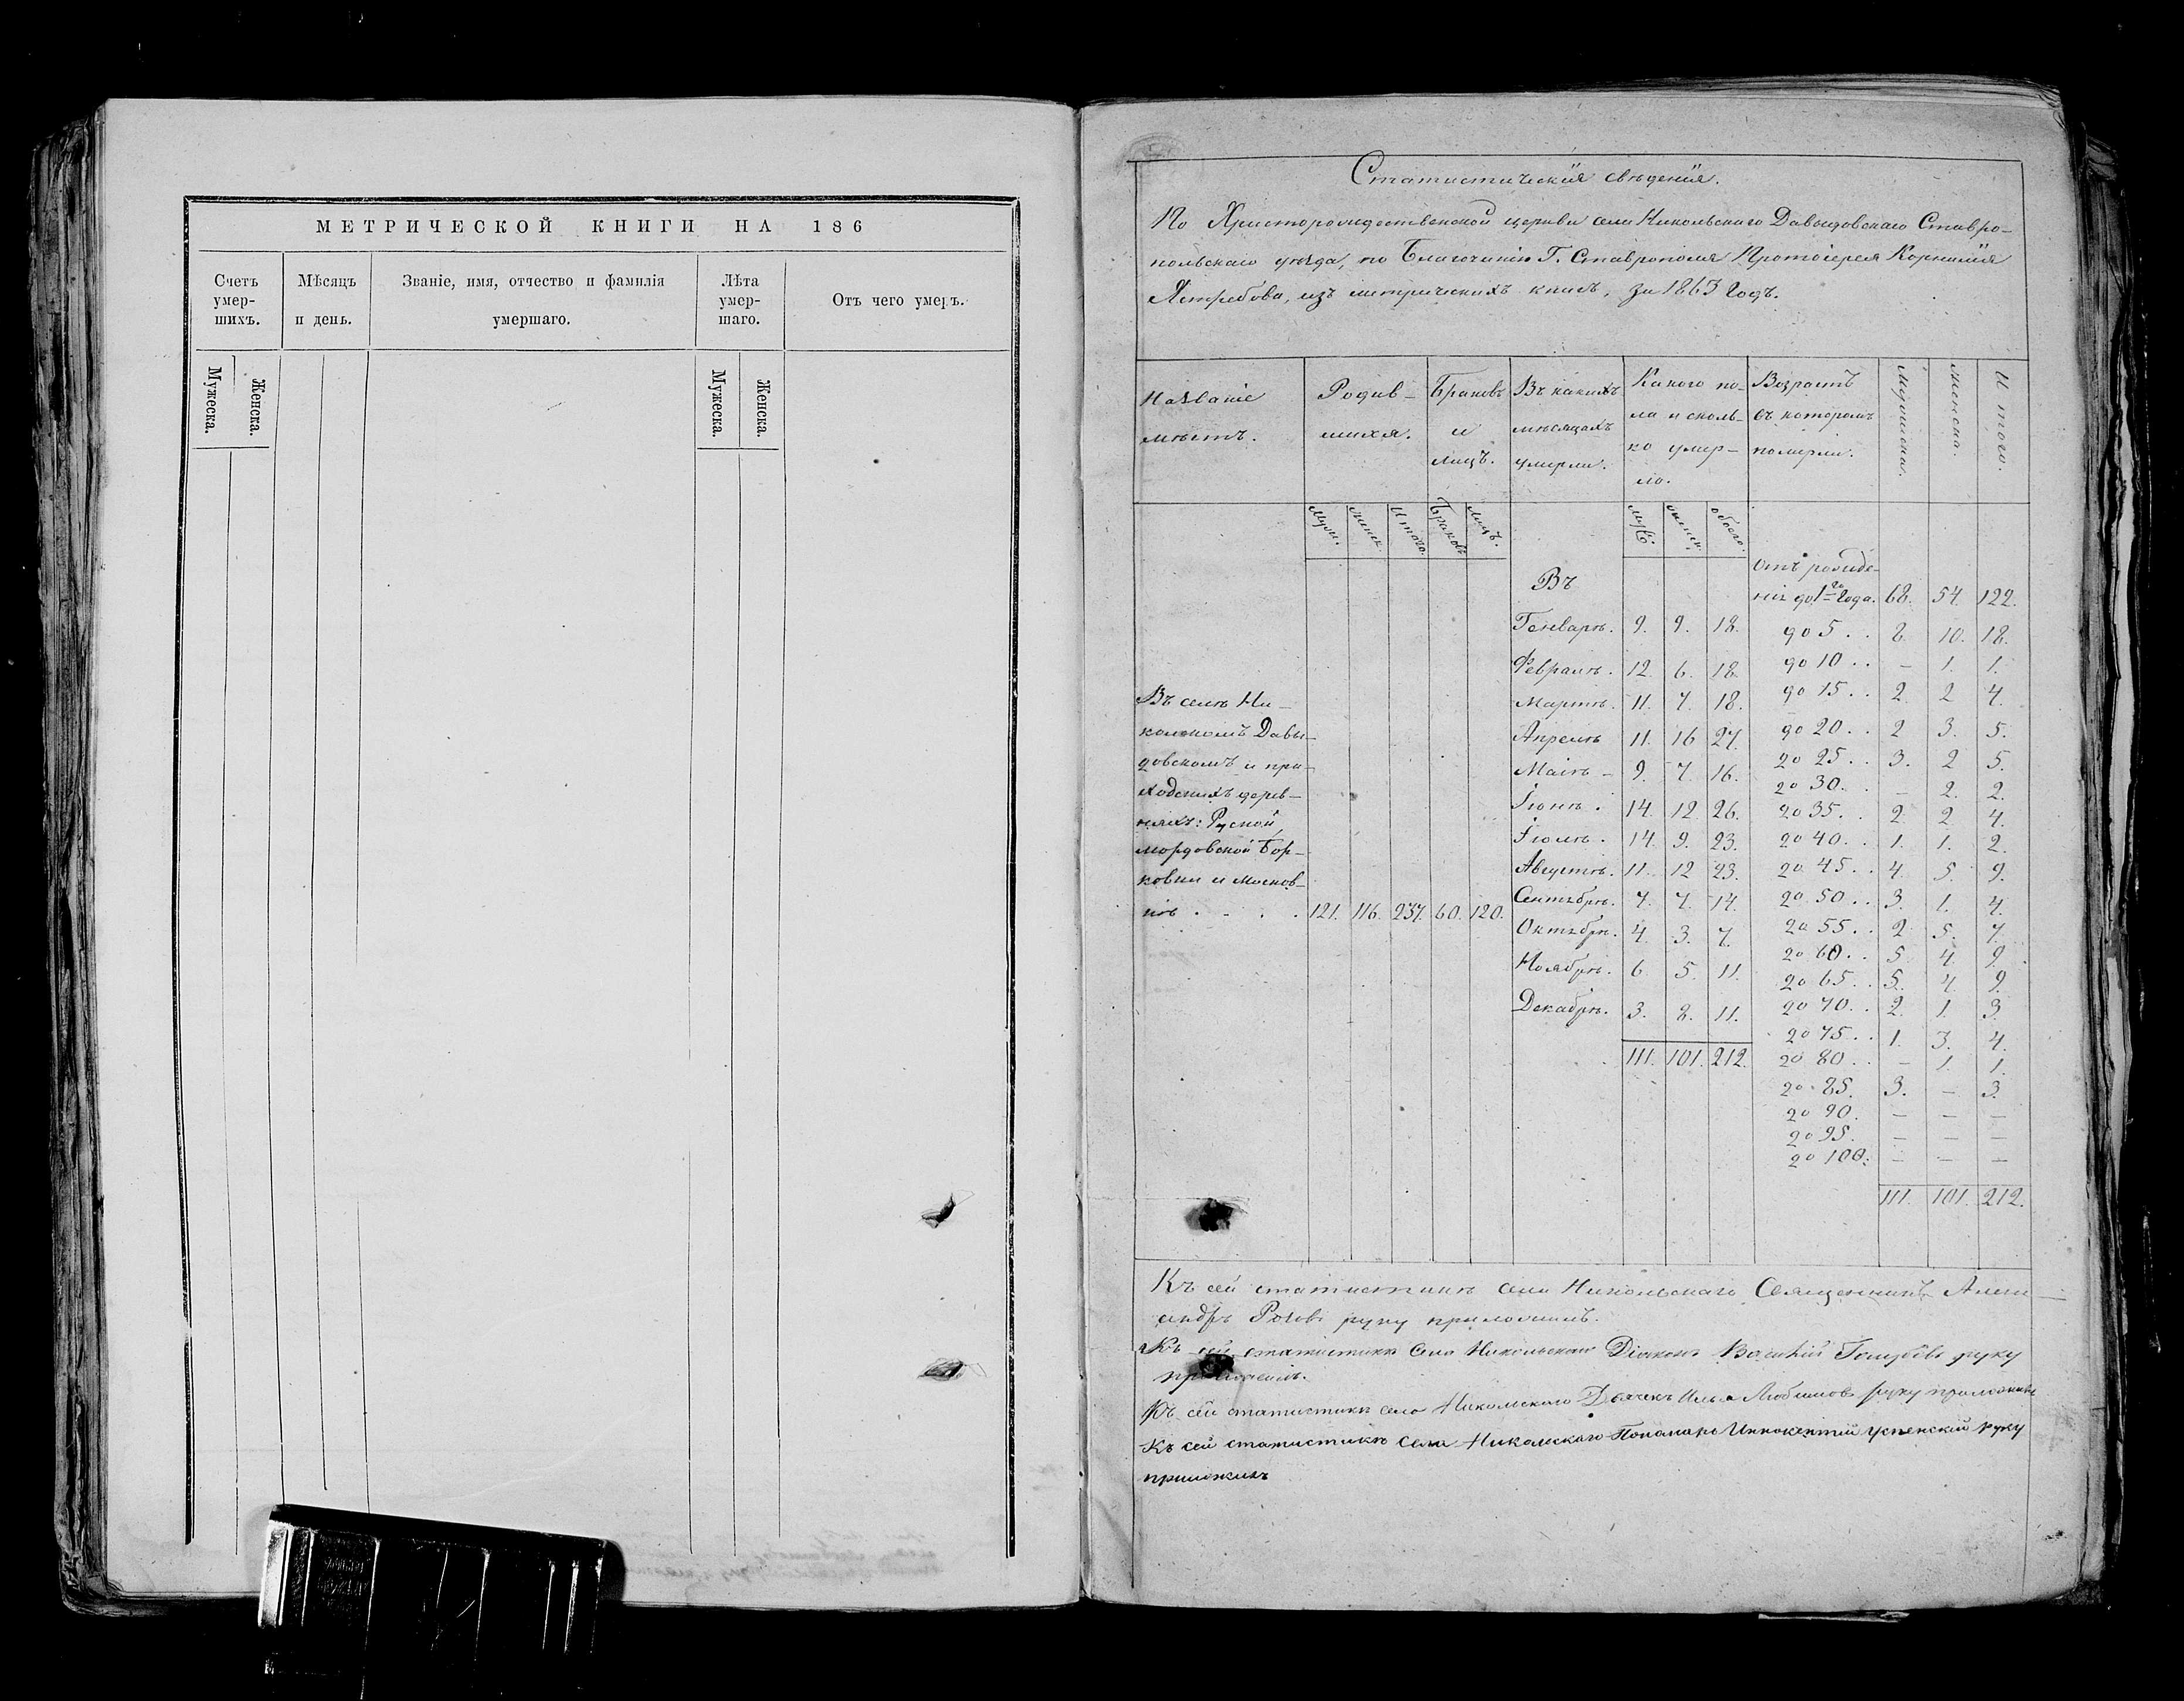 МЕТРИЧЕСКОЙ КНИГИ НА 186
Счетъ умер-шихъ. Мѣсяцъ и день. Званіе, имя, отчество и фамилія умершаго. Лѣта умер-шаго. Отъ чего умеръ.
Мужеска. Женска. Мужеска. Женска.
Статистическія свѣденія.
По Христорождественской церкви села Никольскаго Давыдовскаго Ставро-
польскаго уѣзда, по Благочинію Г. Ставрополя Протоіерея Корнилія
Ястребова, изъ метрическихъ книгъ, за 1863 годъ.
Названіе мѣстъ. Родив-шихся. Браковъ и лицъ. Въ какихъ мѣсяцахъ умерли. Какого по-ла и сколь-ко умер-ло. Возрастъ въ которомъ померли. Мужеска. Женска. Итого.
Муж. Женск. Итого. Браковъ. Лицъ. муж. женск. обоего.
Въ селѣ Ни-
кольскомъ Давы-
довскомъ и при-
ходскихъ дерев-
няхъ: Руской,
мордовской Бор-
ковки и Москов-
кѣ . . . . 121. 116. 237. 60. 120.
Въ
Генварѣ. 9. 9. 18.
Февралѣ. 12. 6. 18.
Мартѣ. 11. 7. 18.
Апрелѣ 11. 16 27.
Маіѣ - 9. 7. 16.
Іюнѣ. 14. 12. 26.
Іюлѣ. 14. 9. 23.
Августѣ. 11. 12 23.
Сентябрѣ. 7. 7. 14.
Октябрѣ. 4. 3. 7.
Ноябрѣ. 6. 5. 11.
Декабрѣ. 3. 8. 11.
111. 101. 212.
Отъ рожде-
нія до 1го года. 68. 54. 122.
до 5 . . 8. 10. 18.
до 10 . . — 1. 1.
до 15 . . 2. 2 4.
до 20 . . 2 3. 5.
до 25 . . 3. 2 5.
до 30. . — 2. 2.
до 35. . 2. 2 4.
до 40. . 1. 1. 2.
до 45. . 4. 5. 9.
до 50 . . 3. 1. 4.
до 55 . . 2. 5. 7.
до 60 . . 5. 4. 9.
до 65 . . 5. 4. 9.
до 70 . . 2. 1. 3.
до 75 . . 1. 3. 4.
до 80 . . — 1. 1.
до 85. 3. — 3.
до 90. — — —
до 95. — — —
до 100. — — —
111. 101. 212.
Къ сей статистикѣ села Никольскаго Священникъ Алек-
сандръ руку приложилъ.
Къ сей статистикѣ села Никольскаго Діаконъ Василій Голубевъ руку
приложилъ.
Къ сей статистикѣ села Никольскаго Дьячекъ Илья Любимовъ руку приложилъ
Къ сей статистикѣ села Никольскаго Пономарь Иннокентій Успенский руку
приложилъ